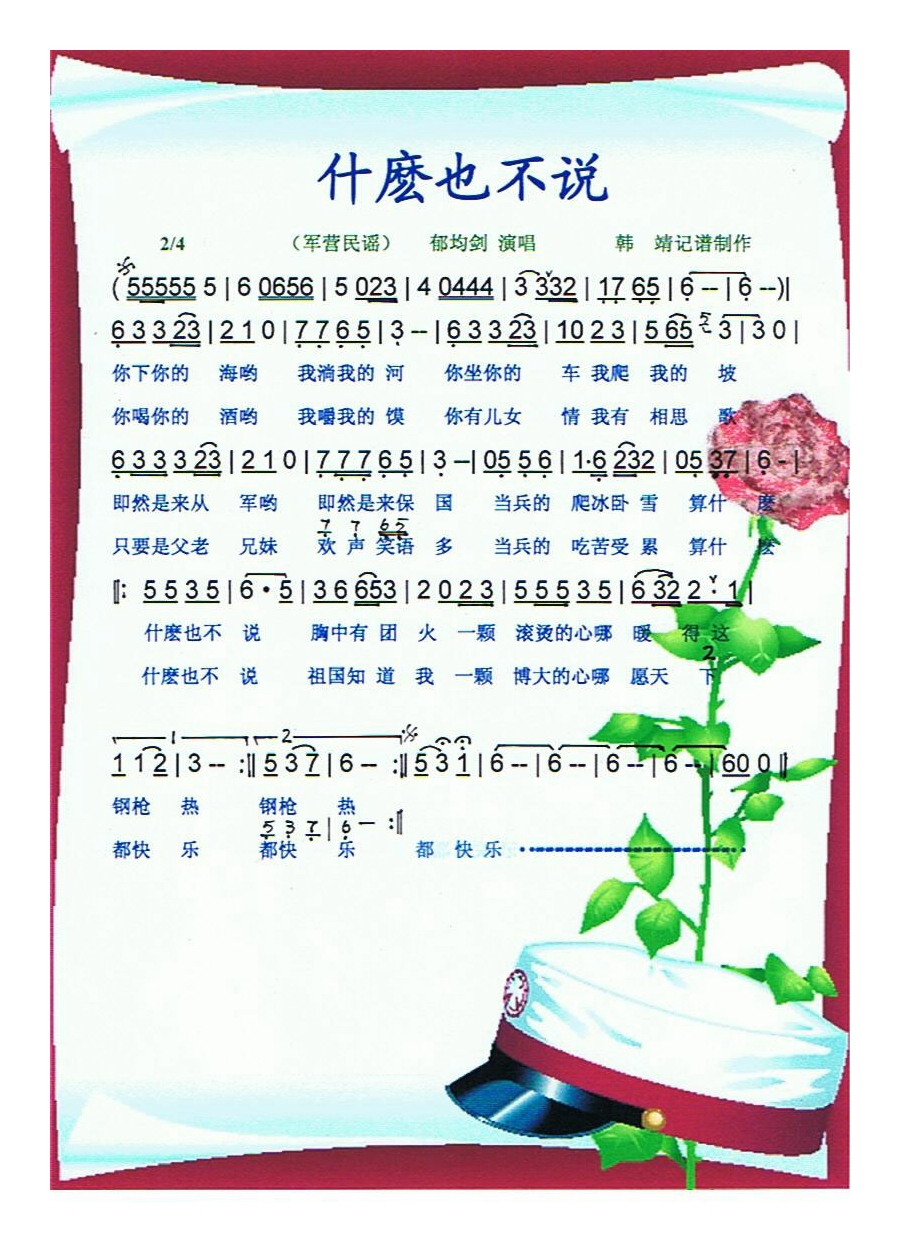 什麽也不说
2/4 （军营民谣） 郁均剑 演唱 韩 靖记谱制作
( 55555 5 | 6 0656 | 5 023 | 4 0444 | 3 332 | 17 65 | 6 -- | 6 --)|
6 3 3 23 | 2 1 0 | 7 7 6 5 | 3 -- | 6 3 3 23 | 10 2 3 | 5 65 3 | 3 0 |
你下你的 海哟 我淌我的 河 你坐你的 车 我爬 我的 坡
你喝你的 酒哟 我嚼我的 馍 你有儿女 情 我有 相思 歌
6 3 3 3 23 | 2 1 0 | 7 7 7 6 5 | 3 --| 05 5 6 | 1·6 232 | 05 37 | 6 - |
即然是来从 军哟 即然是来保 国 当兵的 爬冰卧 雪 算什 麽
7 7 6 5
只要是父老 兄妹 欢 声 笑语 多 当兵的 吃苦受 累 算什 麽
‖: 5 5 3 5 | 6 · 5 | 3 6 653 | 2 0 2 3 | 5 5 5 3 5 | 6 32 2 · 1 |
什麽也不 说 胸中有 团 火 一颗 滚烫的心哪 暖 得 这
2
什麽也不 说 祖国知 道 我 一颗 博大的心哪 愿天 下
1 2
1 1 2 | 3 -- :‖ 5 3 7 | 6 -- :‖ 5 3 1 | 6 -- | 6 -- | 6 -- | 6 -- | 60 0 ‖
钢枪 热 钢枪 热
5 3 7 | 6 — :‖
都快 乐 都快 乐 都 快 乐